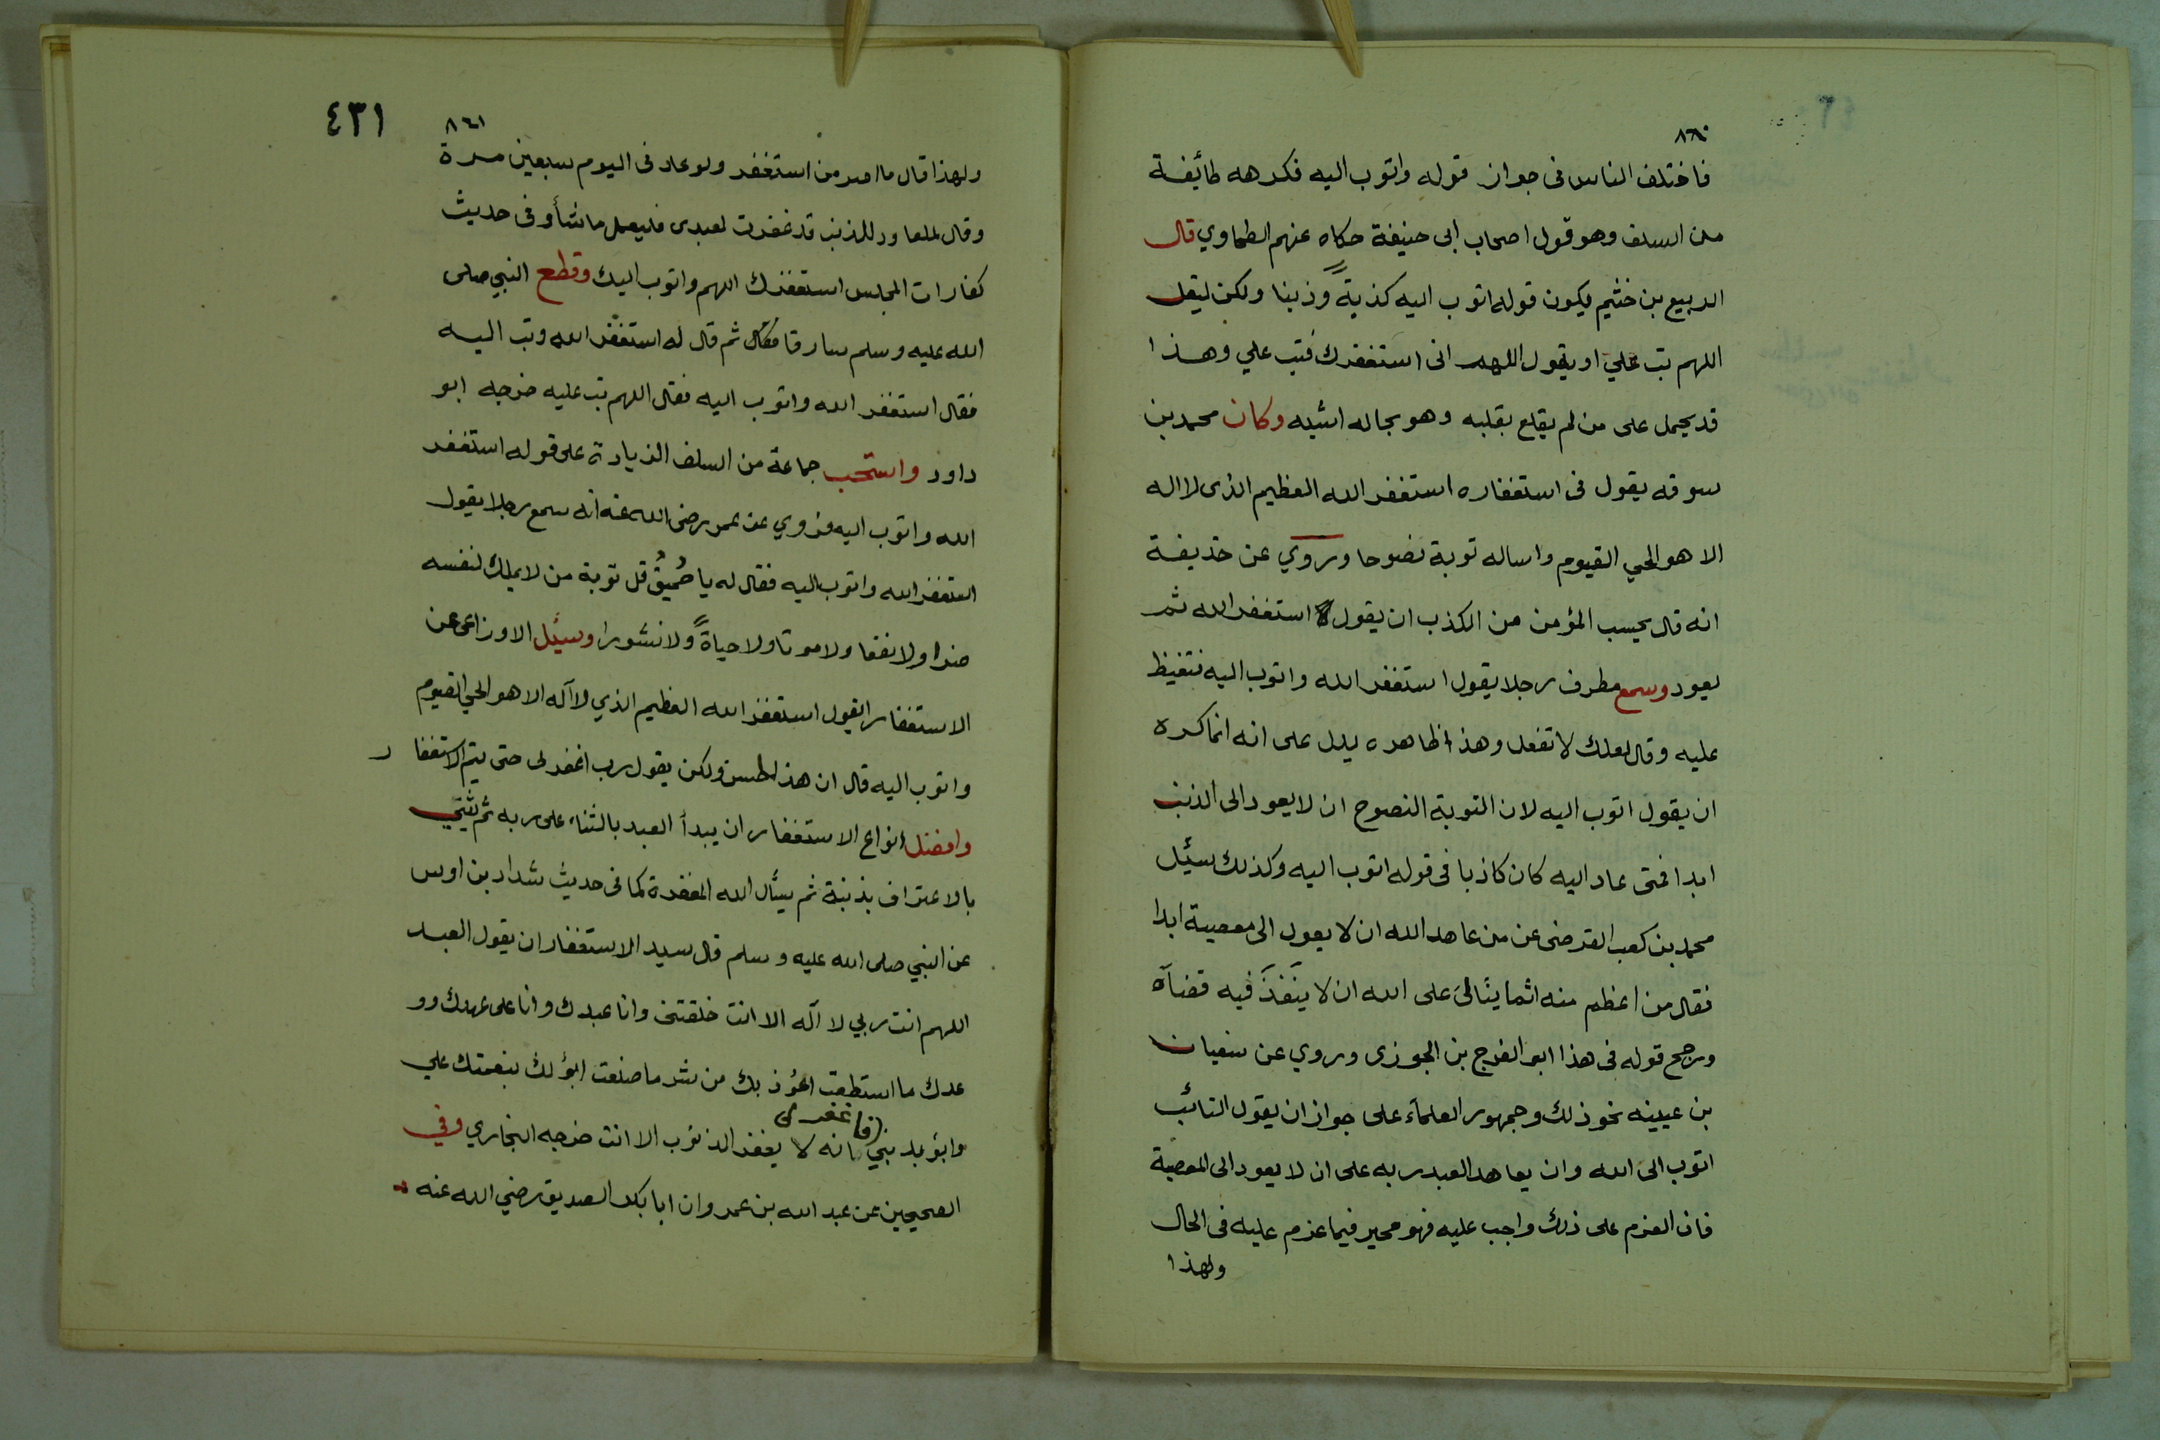 ٨٦٠
فاختلف الناس فى جواز قوله واتوب اليه فكرهه طائفة
من السلف وهو قول اصحاب ابى حنيفة حكاه عنهم الطحاوي قال
الربيع بن خثيم يكون قوله اتوب اليه كذبة وذنبا ولكن ليقل
اللهم تب علي او يقول اللهم انى استغفرك فتب علي وهذا
قد يحمل على من لم يقلع بقلبه وهو بحاله اشبه وكان محمد بن
سوقه يقول فى استغفاره استغفر الله العظيم الذى لا اله
الا هو الحي القيوم واساله توبة نصوحا وروي عن حذيفة
انه قال بحسب المؤمن من الكذب ان يقول استغفر الله ثم
يعود وسمع مطرف رجلا يقول استغفر الله واتوب اليه فتغيظ
عليه وقال لعلك لا تفعل وهذا ظاهره يدل على انه انما كره
ان يقول اتوب اليه لان التوبة النصوح ان لا يعود الى الذنب
ابدا فمتى عاد اليه كان كاذبا فى قوله اتوب اليه وكذلك سئل
محمد بن كعب القرضى عن من عاهد الله ان لا يعود الى معصية ابدا
فقال من اعظم منه اثما يتالى على الله ان لا ينفذ فيه قضآه
ورجح قوله فى هذا ابو الفرج بن الجوزى وروي عن سفيان
بن عيينه نحو ذلك وجمهور العلمآء على جواز ان يقول التائب
اتوب الى الله وان يعاهد العبد ربه على ان لا يعود الى المعصية
فان العزم على ذلك واجب عليه فهو مخير فيما عزم عليه فى الحال
ولهذا
٤٣١
٨٦١
ولهذا قال ما اصر من استغفر ولو عاد فى اليوم سبعين مرة
وقال للمعاود للذنب قد غفرت لعبدى فليعمل ما شأ وفى حديث
كفارات المجلس استغفرك اللهم واتوب اليك وقطع النبي صلى
الله عليه وسلم سارقا ثم قال له استغفر الله وتب اليه
فقال استغفر الله واتوب اليه فقال اللهم تب عليه خرجه ابو
داود واستحب جماعة من السلف الزيادة على قوله استغفر
الله واتوب اليه فروي عن عمر رضى الله عنه انه سمع رجلا يقول
استغفر الله واتوب اليه فقال له يا حُميقُ قل توبة من لا يملك لنفسه
ضرا ولا نفعا ولا موتا ولا حياةً ولا نشورا وسئل الاوزاعى عن
الاستغفار ايقول استغفر الله العظيم الذي لا آله الا هو الحي القيوم
واتوب اليه قال ان هذا لحسن ولكن يقول رب اغفر لى حتى يتم الاستغفار
وافضل انواع الاستغفار ان يبدأ العبد بالثناء على ربه ثم يثني
بالاعتراف بذنبة ثم يسأل الله المغفرة كما فى حديث شداد بن اوس
عن النبي صلى الله عليه وسلم قال سيد الاستغفار ان يقول العبد
اللهم انت ربي لا آله الا انت خلقتنى وانا عبدك وانا على عهدك وو
عدك ما استطعت اعوذ بك من شر ما صنعت ابؤ لك بنعمتك علي
وابؤ بذنبي فاغفر لى فانه لا يغفر الذنوب الا انت خرجه البخاري وفي
الصحيحين عن عبد الله بن عمر وان ابا بكر الصديق رضي الله عنه